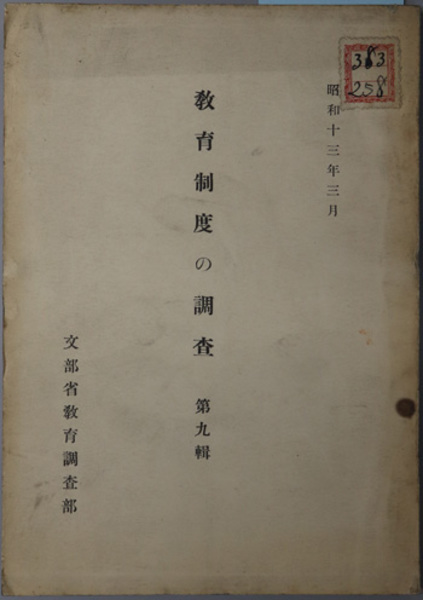 383
258
昭和十三年三月
教育制度の調査 第九輯
文部省教育調査部